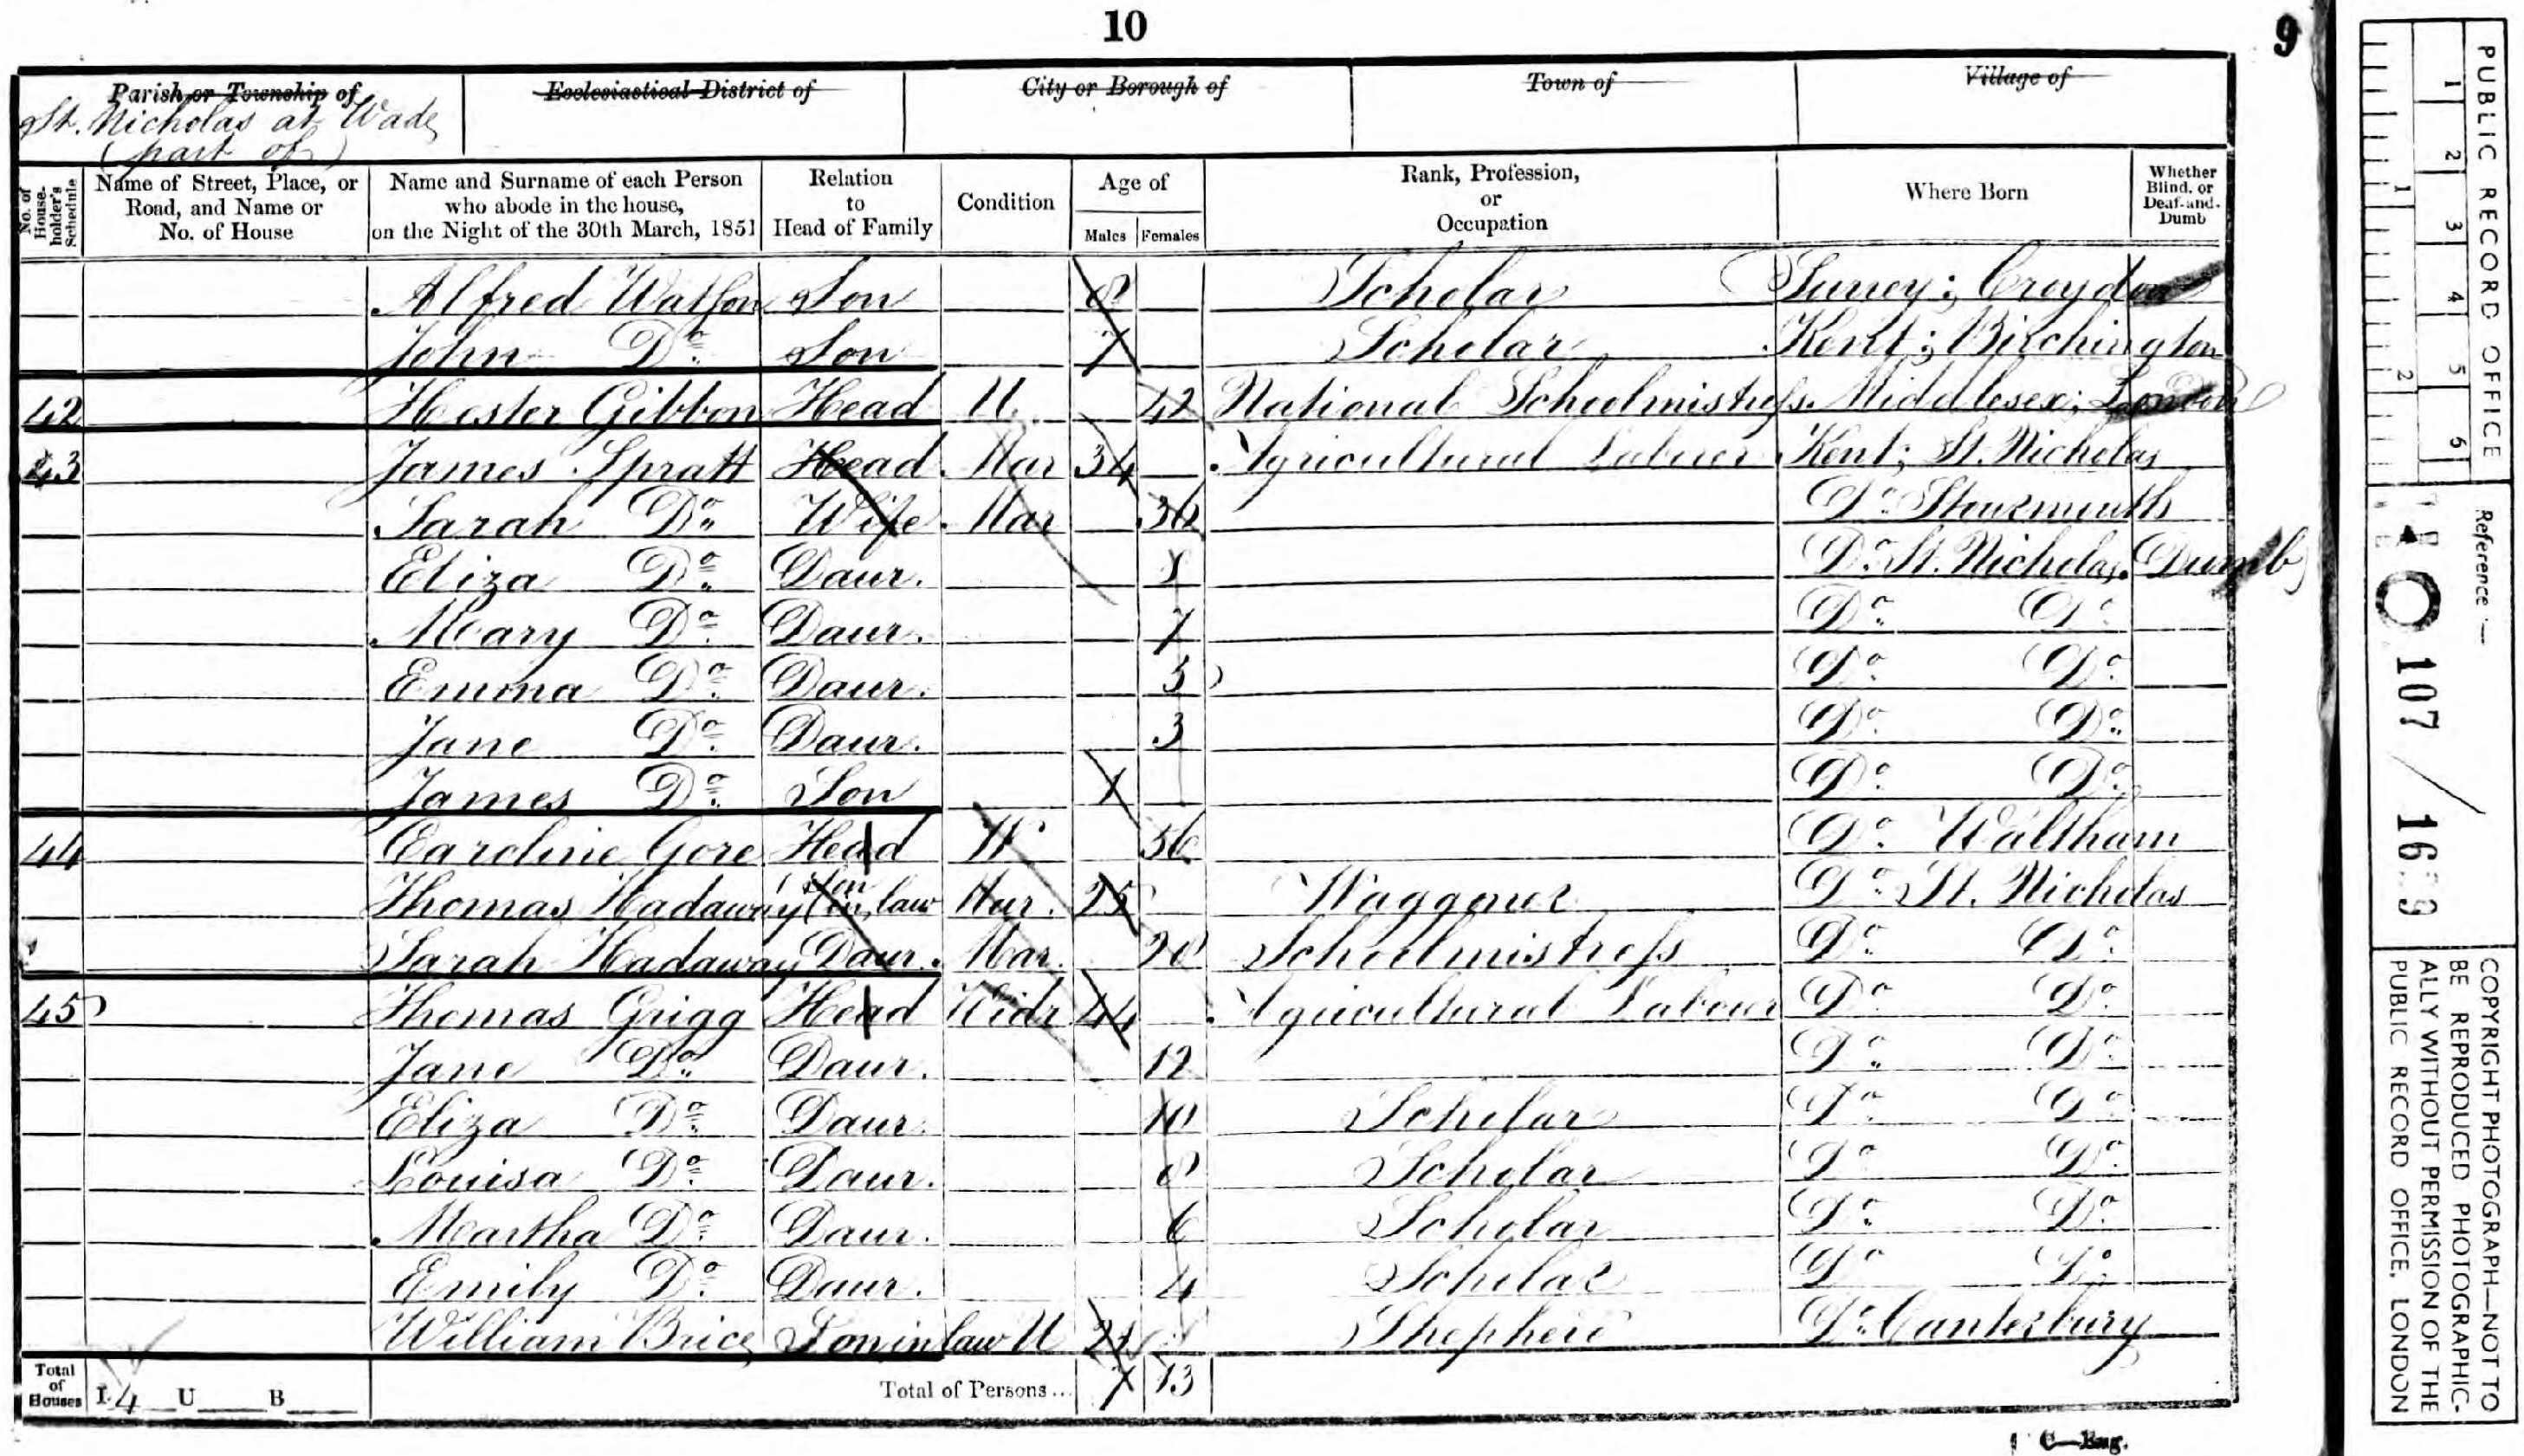 10
9
Parish or Township of
St. Nicholas at Wade
(part of)
Ecclesiastical District of
City or Borough of
Town of
Village of
No. of House-holder's Schedule
Name of Street, Place, or Road, and Name or No. of House
Name and Surname of each Person who abode in the house, on the Night of the 30th March, 1851
Relation to Head of Family
Condition
Age of
Males Females
Rank, Profession, or Occupation
Where Born
Whether Blind, or Deaf-and-Dumb
Alfred Watson Son 8 Scholar Surrey; Croydon
John Do. Son 7 Scholar Kent; Birchington
42 Hester Gibbon Head U. 42 National Schoolmistress Middlesex; London
43 James Spratt Head Mar 34 Agricultural Labourer Kent; St. Nicholas
Sarah Do. Wife Mar 36 Do. Stourmouth
Eliza Do. Daur. 8 Do. St. Nicholas. Dumb
Mary Do. Daur. 7 Do. Do.
Emma Do. Daur. 5 Do. Do.
Jane Do. Daur. 3 Do. Do.
James Do. Son 1 Do. Do.
44 Caroline Gore Head W 56 Do. Waltham
Thomas Hadaway Son in law Mar. 25 Waggoner Do. St. Nicholas
Sarah Hadaway Daur. Mar. 20 Schoolmistress Do. Do.
45 Thomas Grigg Head Widr 44 Agricultural Labour Do. Do.
Jane Do. Daur. 12 Do. Do.
Eliza Do. Daur. 10 Scholar Do. Do.
Louisa Do. Daur. 8 Scholar Do. Do.
Martha Do. Daur. 6 Scholar Do. Do.
Emily Do. Daur. 4 Scholar Do. Do.
William Brice Son in law U 21 Shepherd Do. Canterbury
Total of Houses I 4 U B Total of Persons... 7 13
C—Eng.
PUBLIC RECORD OFFICE
1 2 3 4 5 6
1 2
Reference:—
107 /
COPYRIGHT PHOTOGRAPH—NOT TO
BE REPRODUCED PHOTOGRAPHIC-
ALLY WITHOUT PERMISSION OF THE
PUBLIC RECORD OFFICE, LONDON